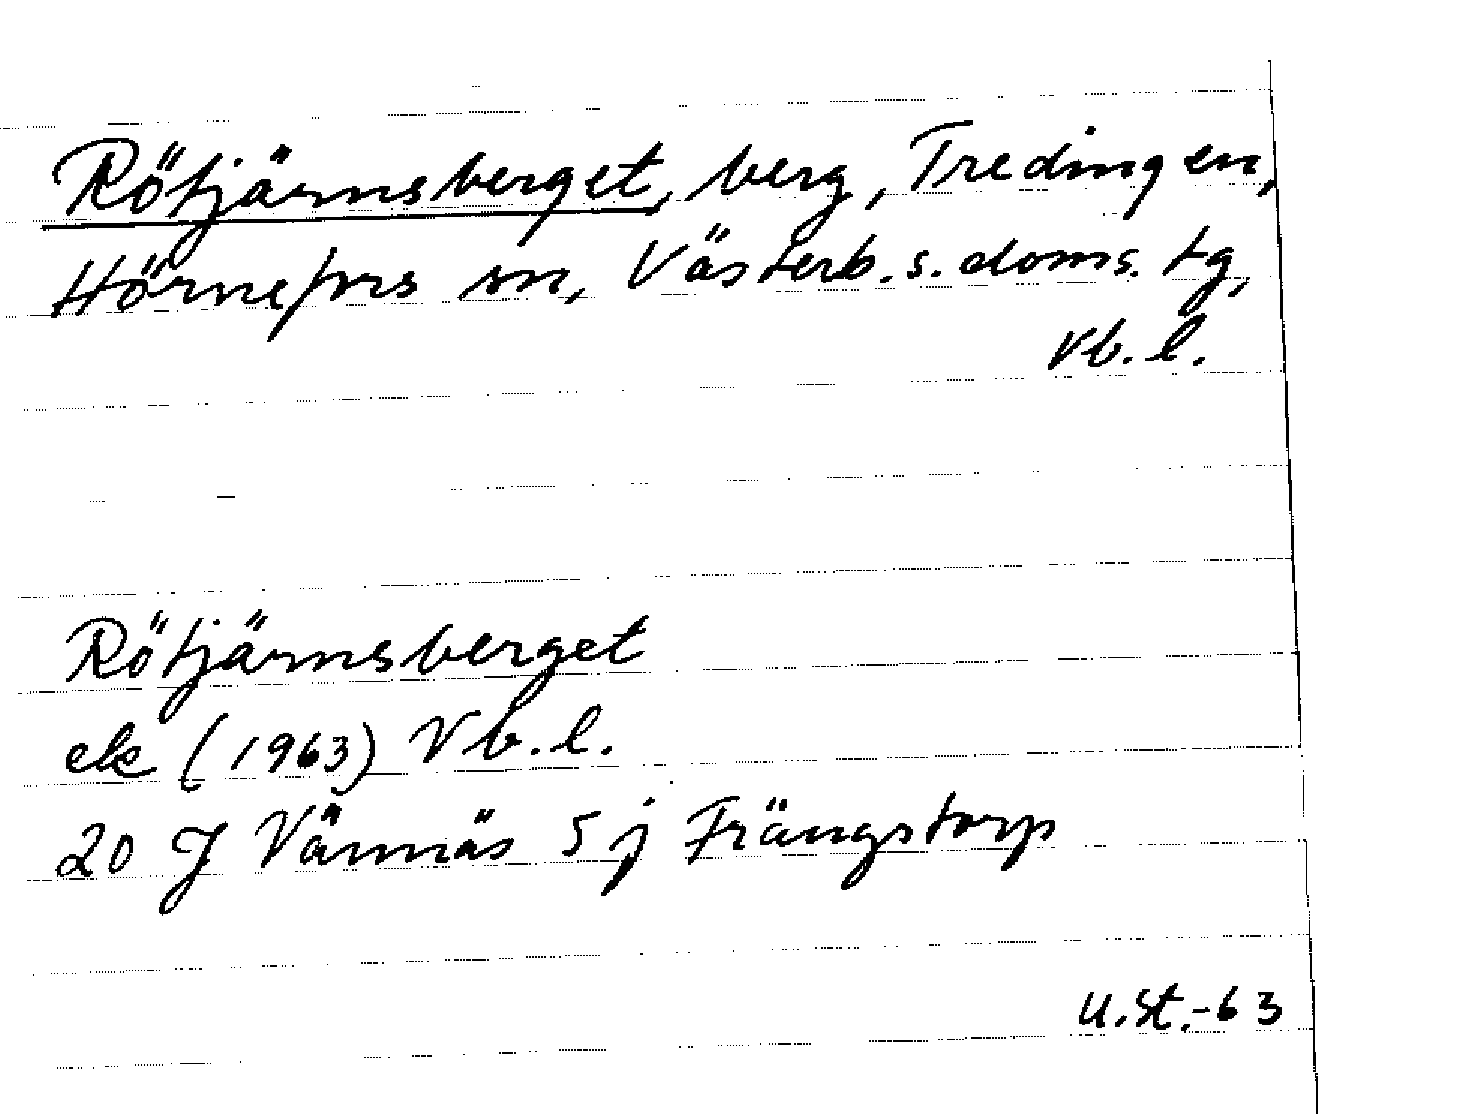 Rötjärnsberget, berg, Tredingen,
Hörnefors sn, Västerb. s. doms. tg,
Vb. l.
Rötjärnsberget
ek (1963) Vb. l.
20 J Vännäs 5 j Frängstorp
U.St.-63